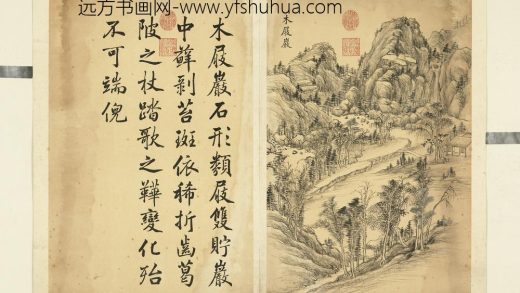 远方书画网:www.yfshuhua.com
木屐巖
木屐巖石形類屐雙貯巖
中蘚剥苔斑依稀折齒葛
陂之杖踏歌之鞾變化殆
不可端倪